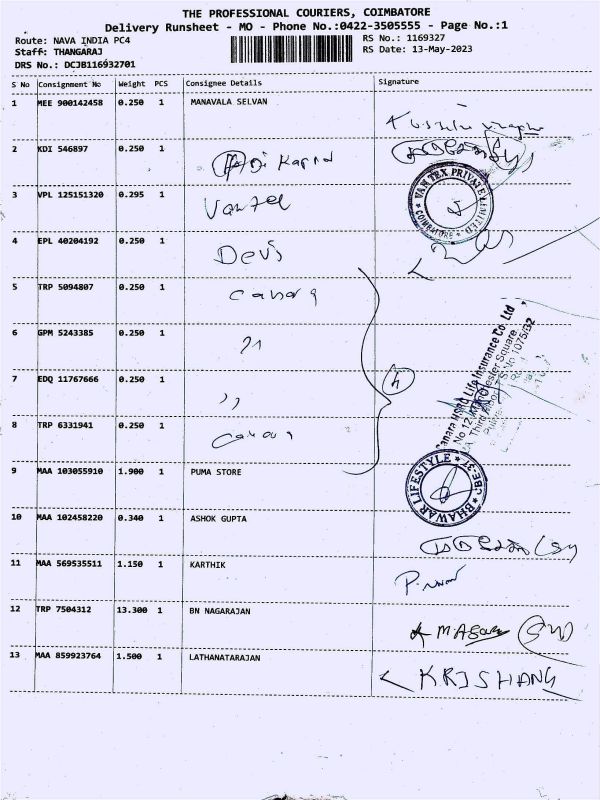 THE PROFESSIONAL COURIERS, COIMBATORE
Delivery Runsheet - MO - Phone No.:0422-3505555 - Page No.:1
Route: NAVA INDIA PC4
RS No.: 1169327
Staff: THANGARAJ
RS Date: 13-May-2023
DRS No.: DCJB116932701
S No Consignment No Weight PCS Consignee Details Signature
1 MEE 900142458 0.250 1 MANAVALA SELVAN
2 KDI 546897 0.250 1
3 VPL 125151320 0.295 1
VAN TEX PRIVATE LIMITED
* COIMBATORE *
4 EPL 40204192 0.250 1 Devis
5 TRP 5094807 0.250 1 Canara
6 GPM 5243385 0.250 1 ,,
7 EDQ 11767666 0.250 1 ,,
4
8 TRP 6331941 0.250 1 Canara
Life Insurance Co. Ltd
9 MAA 103055910 1.900 1 PUMA STORE
BHAWAR LIFESTYLE * CBE-37 *
10 MAA 102458220 0.340 1 ASHOK GUPTA
11 MAA 569535511 1.150 1 KARTHIK
12 TRP 7504312 13.300 1 BN NAGARAJAN
13 MAA 859923764 1.500 1 LATHANATARAJAN